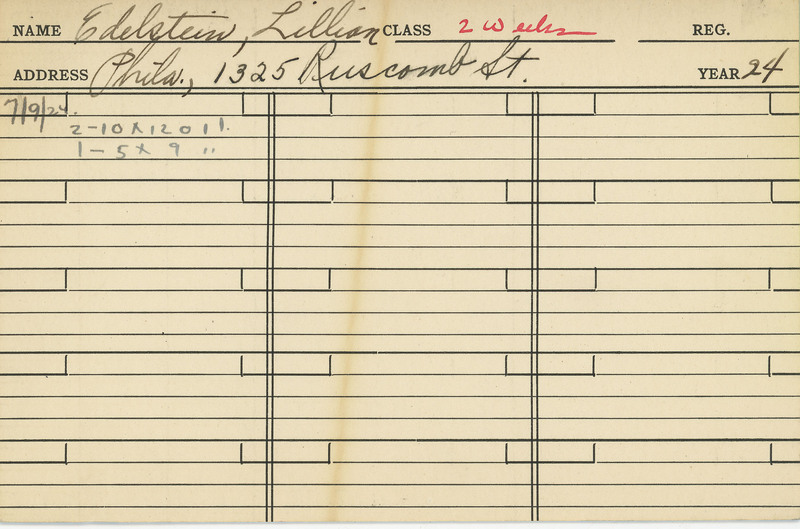 NAME Edelstein, Lillian CLASS 2 Weeks REG.
ADDRESS Phila., 1325 Ruscomb St. YEAR 24
7/9/24.
2-10 X 12 O I I.
1 - 5 X 9 "